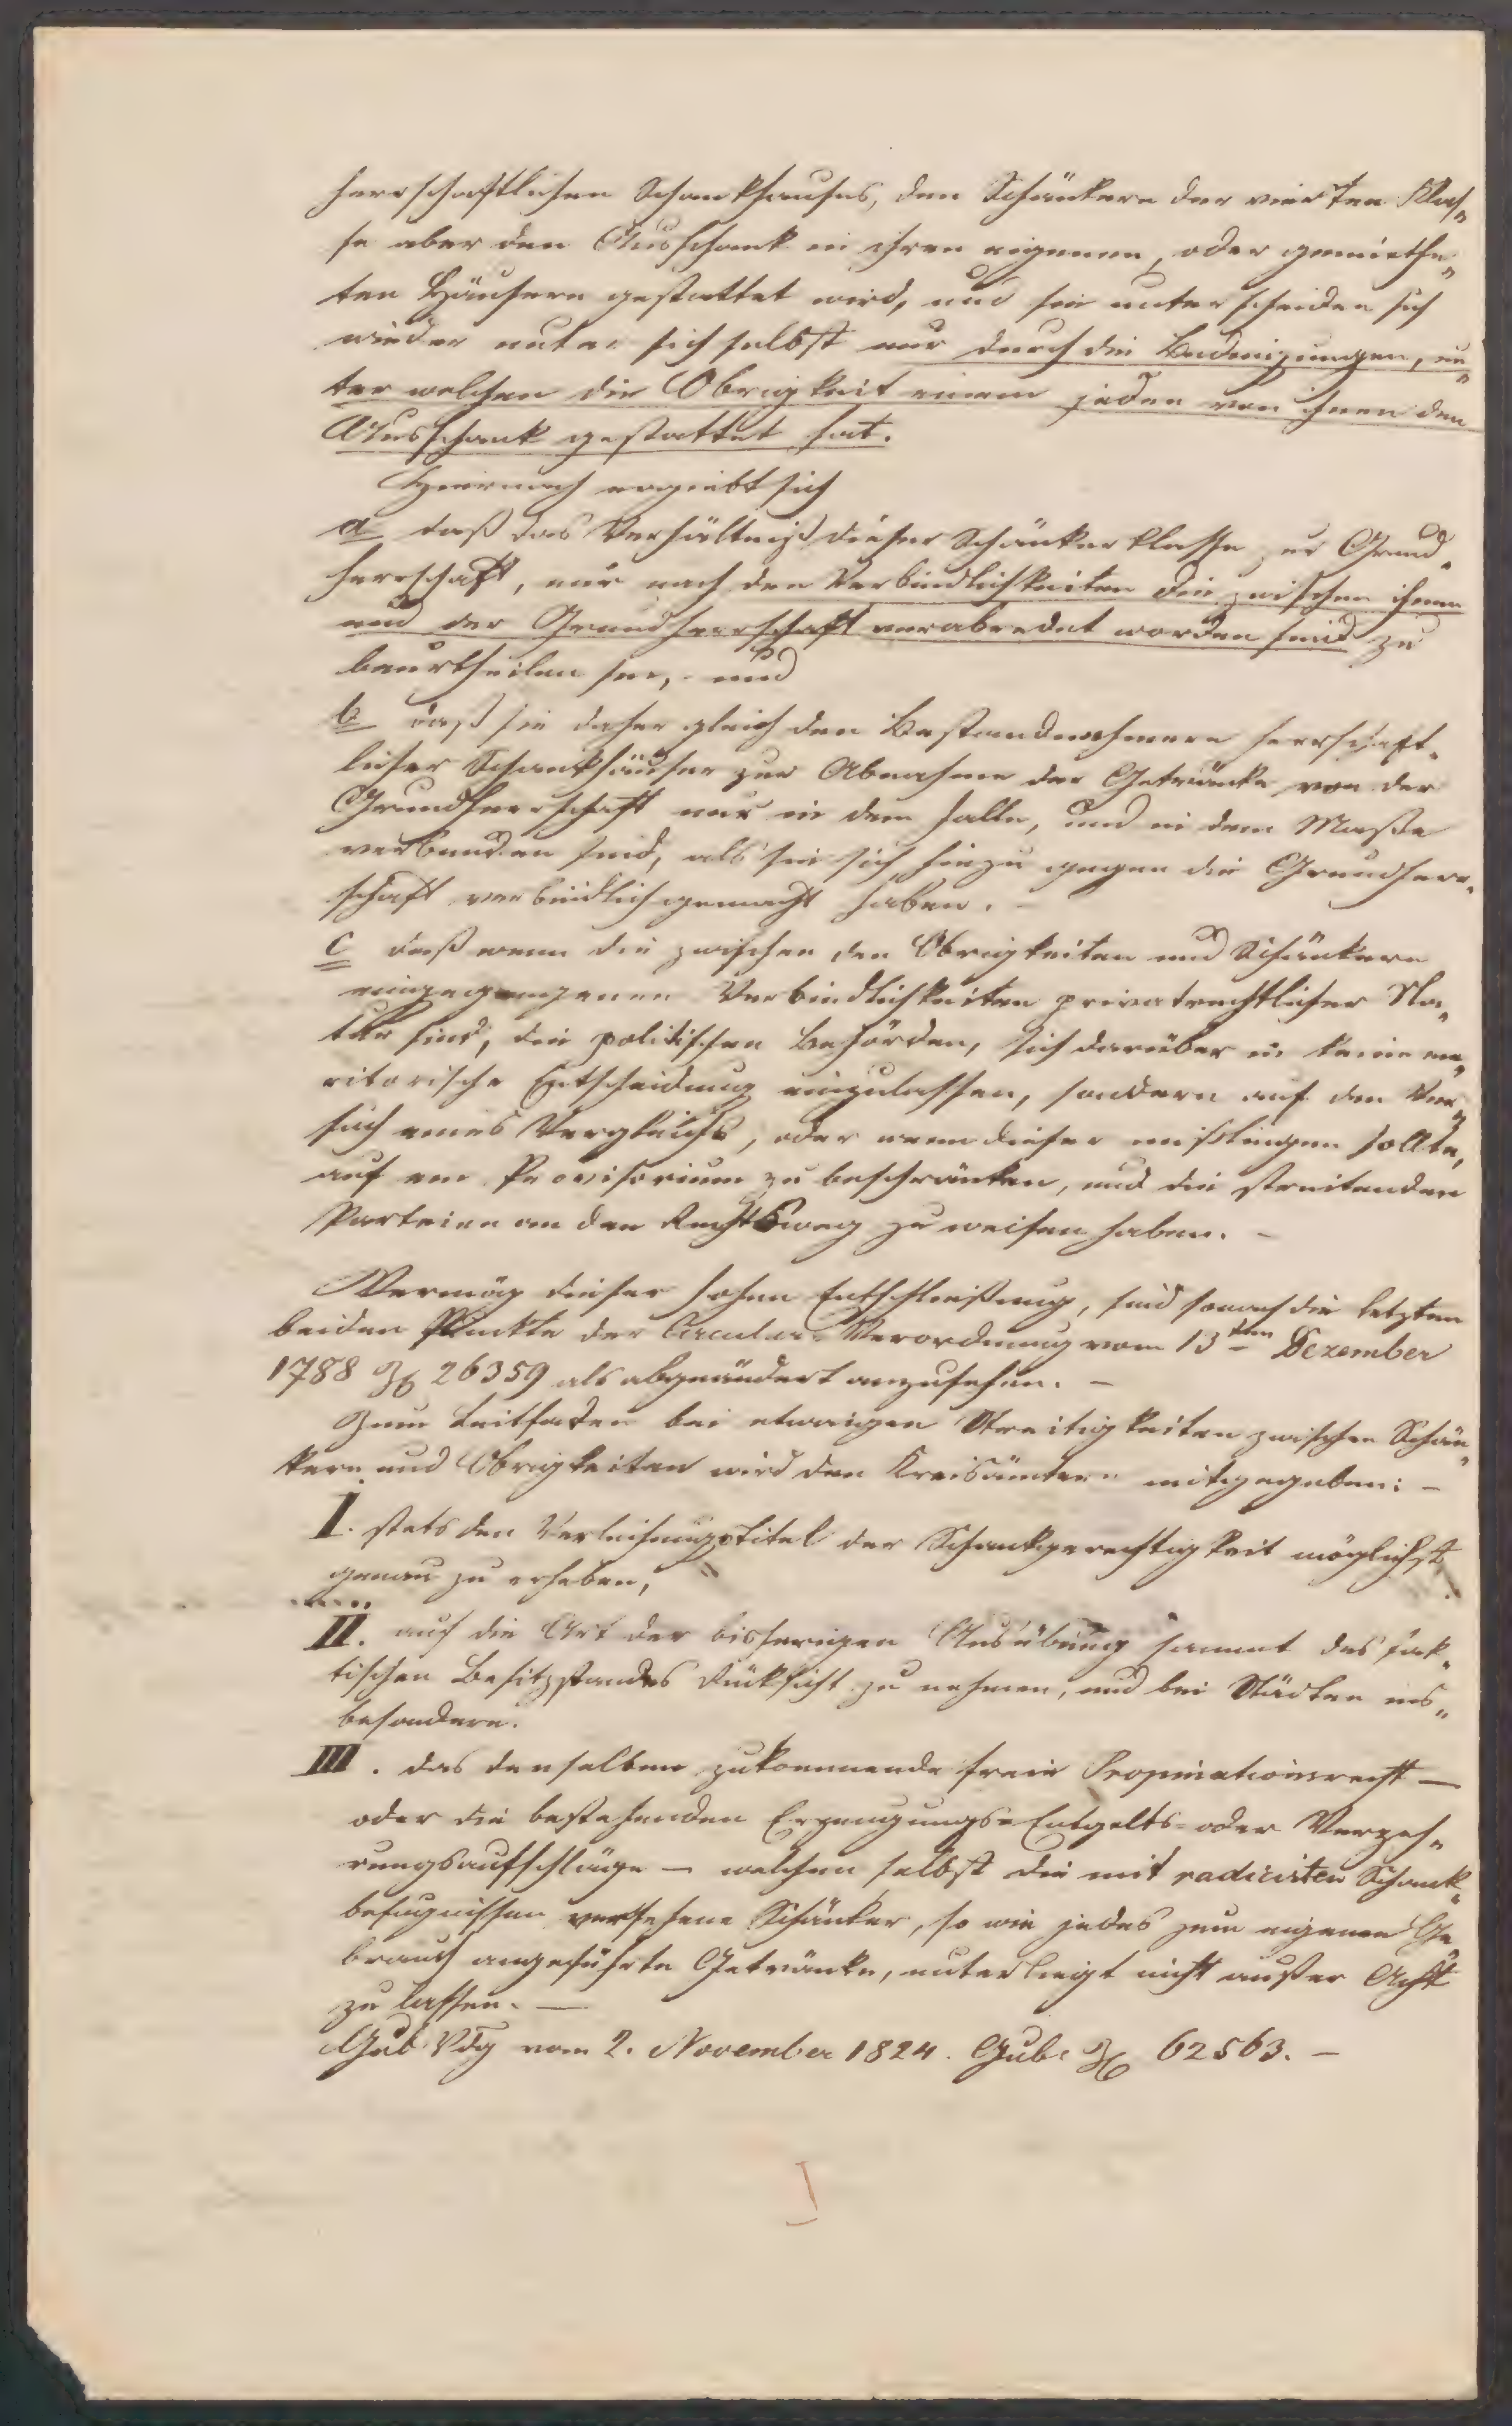 herrschaftlichen Schankhauses, den Schänkern der vierten Klas„
se aber den Ausschank in ihren eigenen, oder gemiethe„
ten Häusern gestattet wird, und sie unterscheiden sich
wieder unter sich selbst nur durch die Bedingungen, un„
ter welchen die Obrigkeit einem jeden von ihnen den
Ausschank gestattet hat.
Hiernach ergiebt sich
a daß das Verhältniß dieser Schänkerklasse zur Grund„
herrschaft, nur nach den Verbindlichkeiten die zwischen ihnen
und der Grundherrschaft verabredet worden sind zu
beurtheilen sei, und
b daß sie daher gleich den Bestandnehmern herrschaft„
licher Schankhäuser zur Abnahme der Getränke von der
Grundherrschaft nur in dem Falle, und in dem Maße
verbunden sind, als sie sich hiezu gegen die Grundherr„
schaft verbindlich gemacht haben. –
c daß wenn die zwischen den Obrigkeiten und Schänkern
eingegangenen Verbindlichkeiten privatrechtlicher Na„
tur sind, die politischen Behörden, sich darüber in keine me„
ritorische Entscheidung einzulassen, sondern auf den Ver„
such eines Vergleichs, oder wenn dieser mißlingen sollte,
auf ein Provisorium zu beschränken, und die streitenden
Parteien an den Rechtsweg zu weisen haben. –
Vermög dieser hohen Entschließung, sind sonach die letzten
beiden Punkte der Circular-Verordnung vom 13ten Dezember
1788 Z 26359 als abgeändert anzusehen. –
Zum Leitfaden bei etwaigen Streitigkeiten zwischen Schän„
kern und Obrigkeiten wird den Kreisämtern mitgegeben: –
I. stets den Verleihungstitel der Schankgerechtigkeit möglichst
genau zu erheben,
II. auf die Art der bisherigen Ausübung sammt des fak„
tischen Besitzstandes Rücksicht zu nehmen, und bei Städten ins„
besondere.
III. das denselben zukommende freie Propinationsrecht —
oder die bestehenden Erzeugungs- Entgelts- oder Verzeh„
rungsaufschläge – welchen selbst die mit radicirten Schank„
befugnissen versehene Schänker, so wie jedes zum eigenen Ge
brauch angeführte Getränke, unterliegt nicht außer Acht
zu lassen. —
Gub Vdg vom 2. November 1824. Gub. Z 62563. –